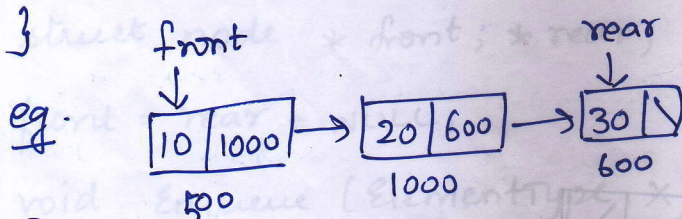 }
front rear
eg.
10 1000 20 600 30
500 1000 600